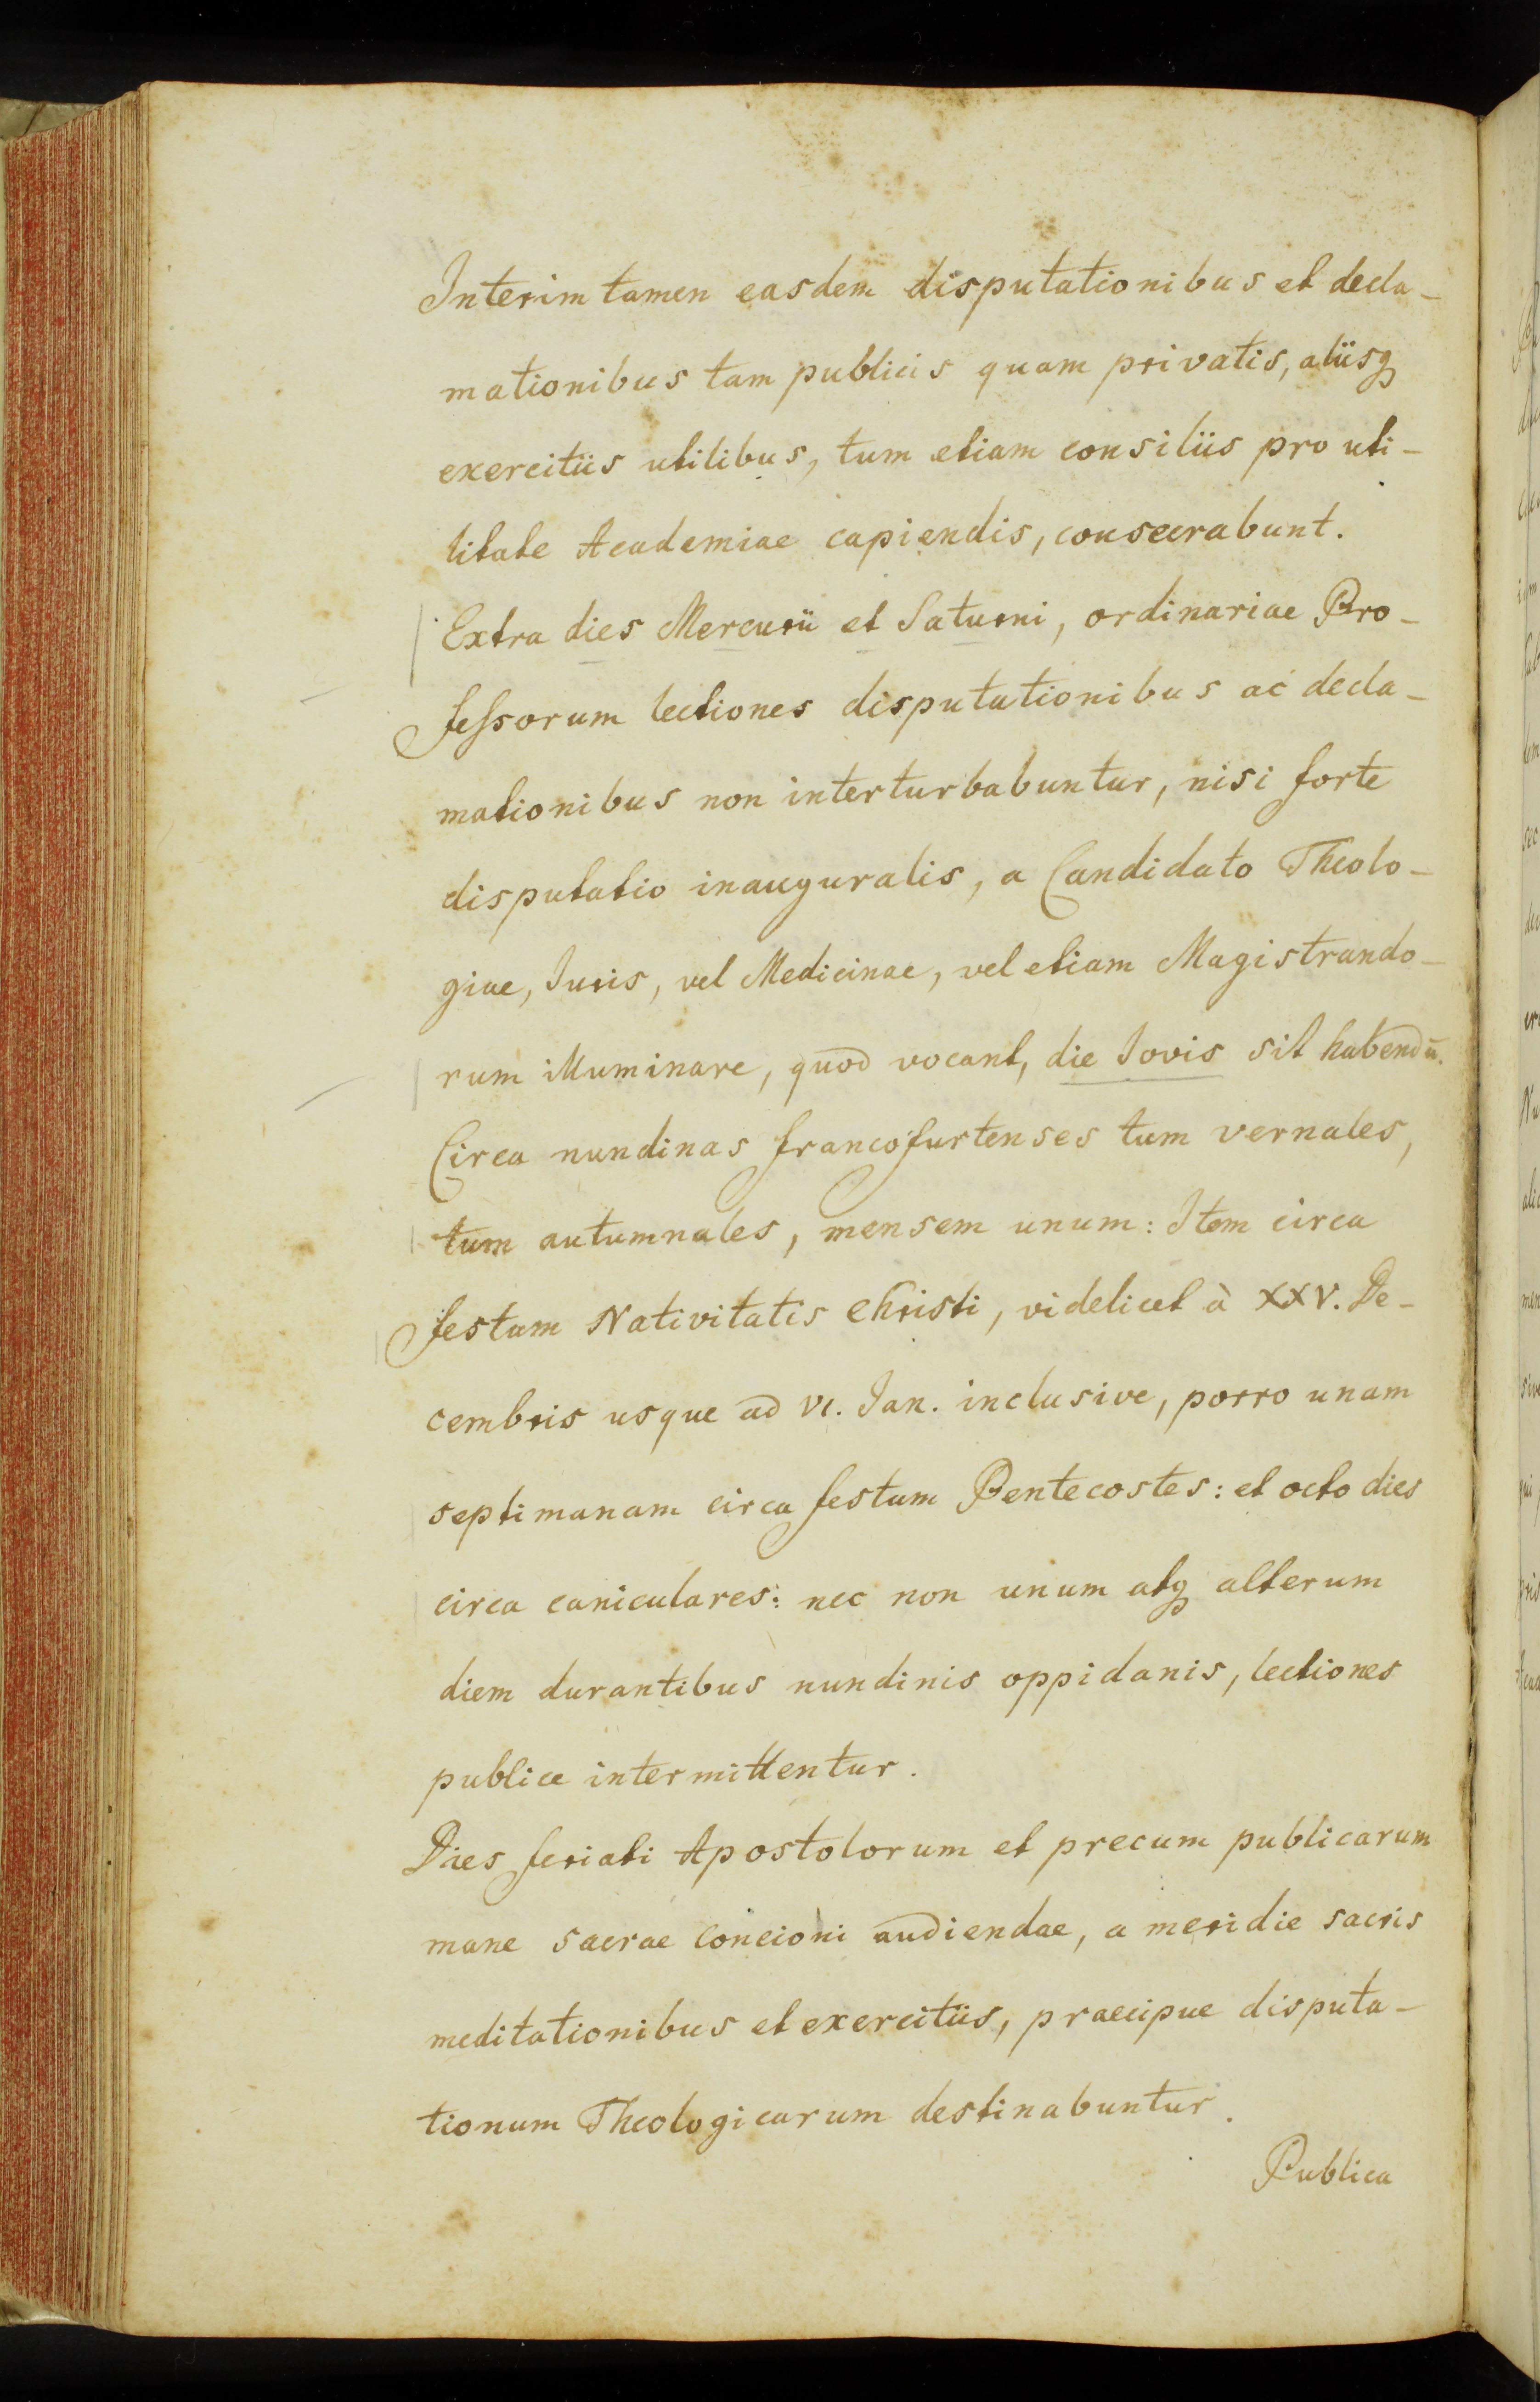 Interim tamen easdem disputationibus et decla-
mationibus tam publicis quam privatis, aliisq
exercitiis utilibus, tum etiam consiliis pro uti-
litate Academiae capiendis, consecrabunt.
Extra dies Mercurii et Saturni, ordinariae Pro-
fessorum lectiones disputationibus ac decla-
mationibus non interturbabuntur, nisi forte
disputatio inauguralis, a Candidato Theolo-
giae, Iuris, vel Medicinae, vel etiam Magistrando-
rum illuminare, quod vocant, die Iovis sit habendū.
Circa nundinas francofurtenses tum vernales,
tum autumnales, mensem unum: Item circa
festum Nativitatis Christi, videlicet à XXV. De-
cembris usque ad VI. Ian. inclusive, porro unam
septimanam circa festum Pentecostes: et octo dies
circa caniculares: nec non unum atq alterum
diem durantibus nundinis oppidanis, lectiones
publice intermittentur.
Dies feriati Apostolorum et precum publicarum
mane sacrae concioni audiendae, a meridie sacris
meditationibus et exercitiis, praecipue disputa-
tionum Theologicarum destinabuntur.
Publica